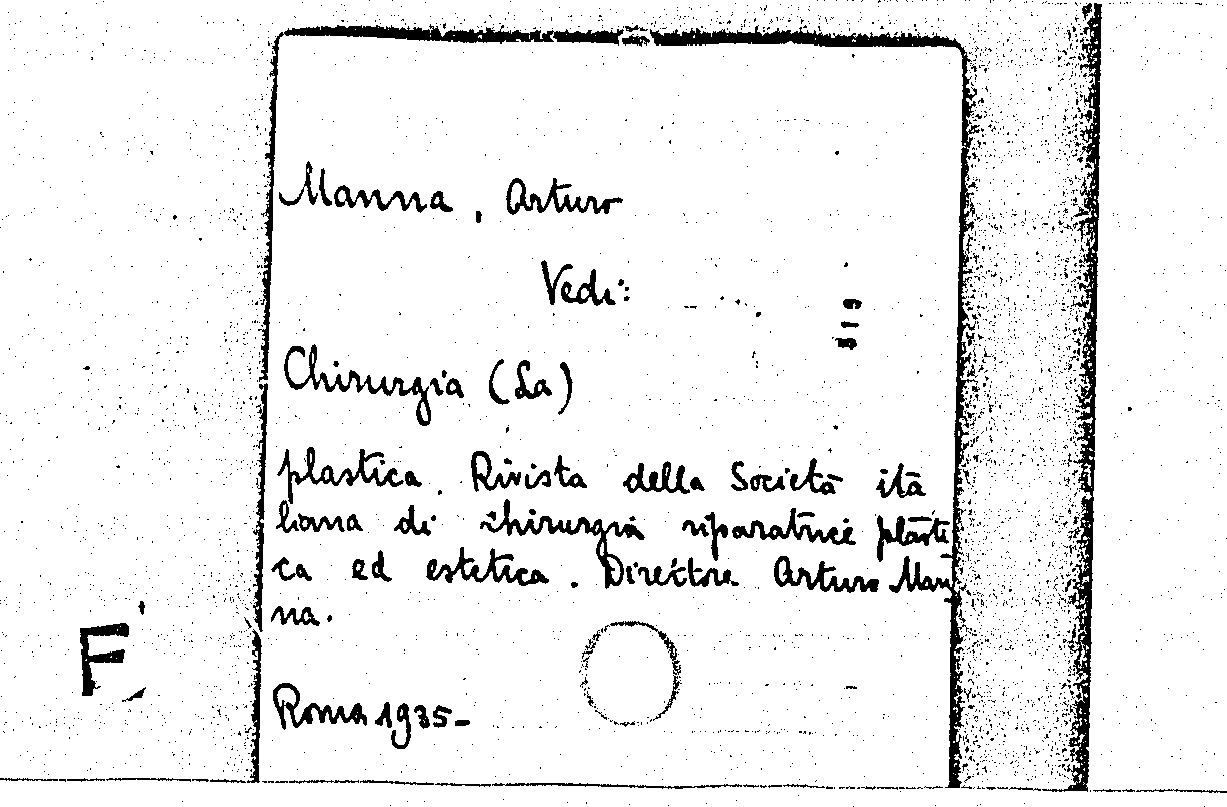 Manna, Arturo
Vedi:
Chirurgia (La)
plastica. Rivista della Società ita
liana di chirurgia riparatrice plasti
ca ed estetica. Direttore Arturo Man
na.
Roma 1935-
F